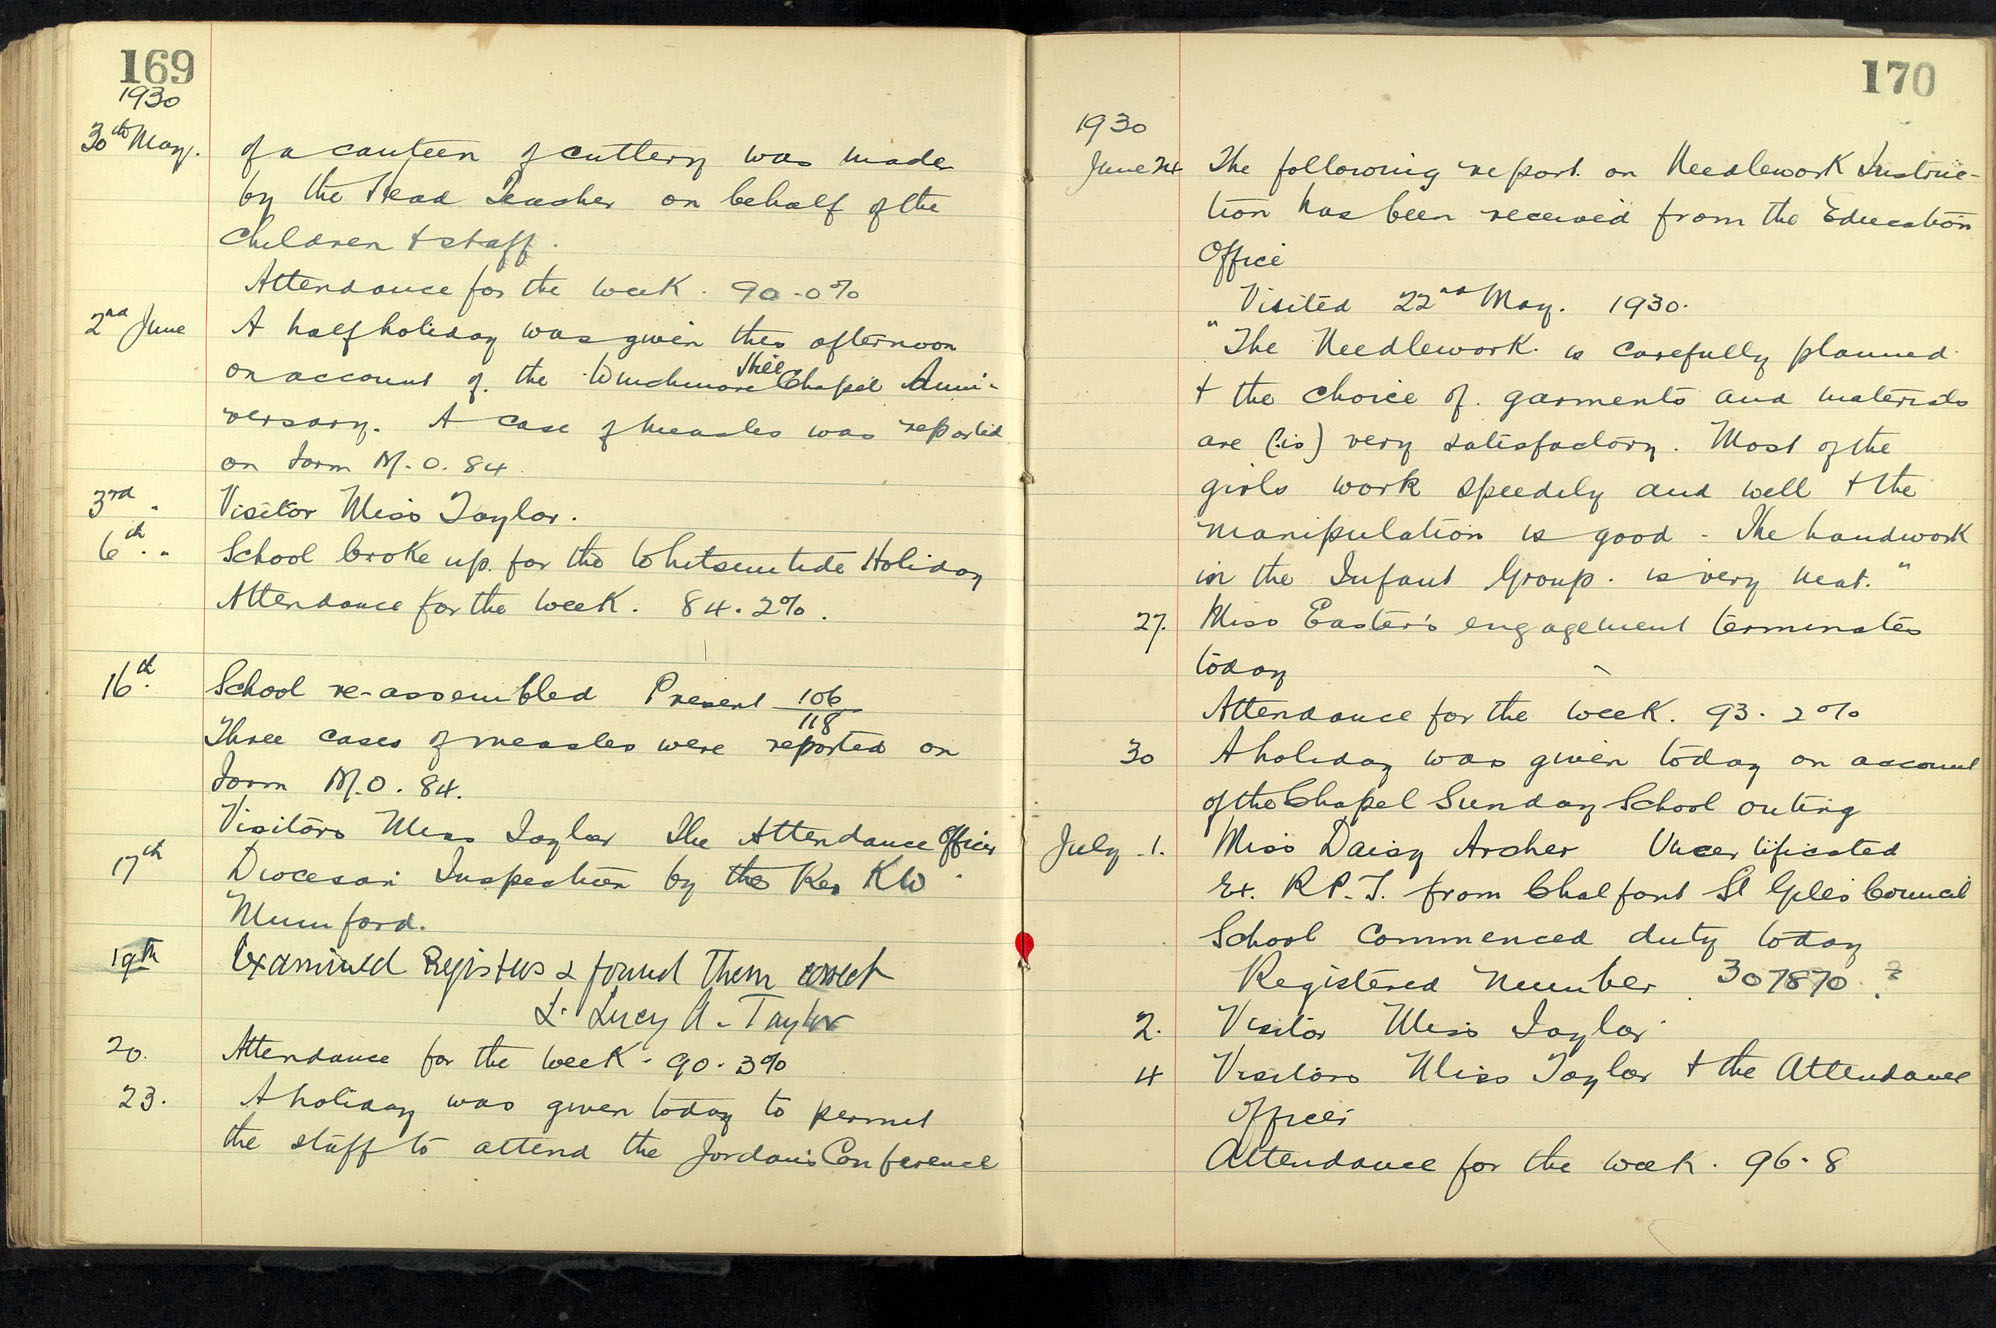 169
1930
30th May. of a canteen of cutlery was made
by the Head Teacher on behalf of the
children & staff.
Attendance for the week. 90.0%
2nd June A half holiday was given this afternoon
on account of the Winchmore Hill Chapel Anni-
versary. A case of measles was reported
on Form M.O. 84.
3rd " Visitor Miss Taylor.
6th " School broke up for the Whitsuntide Holiday
Attendance for the week. 84.2%.
16th. School re-assembled Present 106
118
Three cases of measles were reported on
Form M.O. 84.
Visitors Miss Taylor The Attendance Officer
17th Diocesan Inspection by the Rev KW
Mumford.
19th Examined Registers & found them correct
L. Lucy A. Taylor
20. Attendance for the week. 90.3%
23. A holiday was given today to permit
the staff to attend the Jordans Conference
170
1930
June 24 The following report on Needlework Instruc-
tion has been received from the Education
Office
Visited 22nd May. 1930.
"The Needlework is carefully planned
& the choice of garments and materials
are (is) very satisfactory. Most of the
girls work speedily and well & the
manipulation is good - The handwork
in the Infant Group is very neat."
27. Miss Easter's engagement terminates
today
Attendance for the week. 93.2%
30 A holiday was given today on account
of the Chapel Sunday School outing
July 1. Miss Daisy Archer Uncertificated
Ex. R.P.T. from Chalfont St Giles Council
School commenced duty today
Registered Number 307870.?
2. Visitor Miss Taylor
4 Visitors Miss Taylor & the Attendance
Officer
Attendance for the week. 96.8